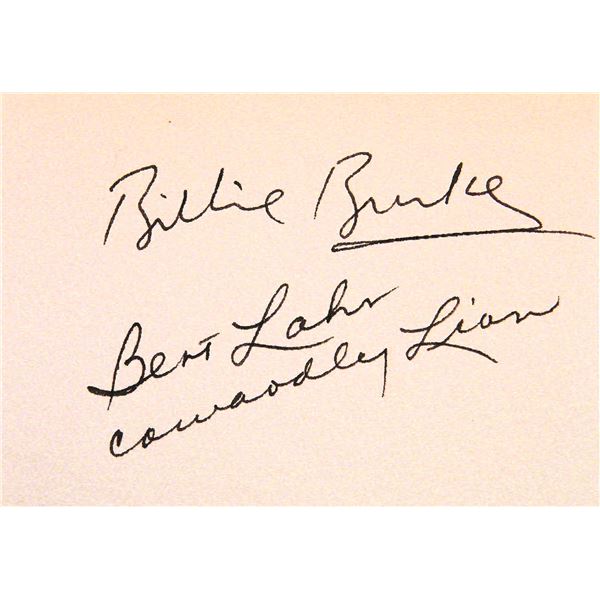 Billie Burke
Bert Lahr
cowaodley Lion